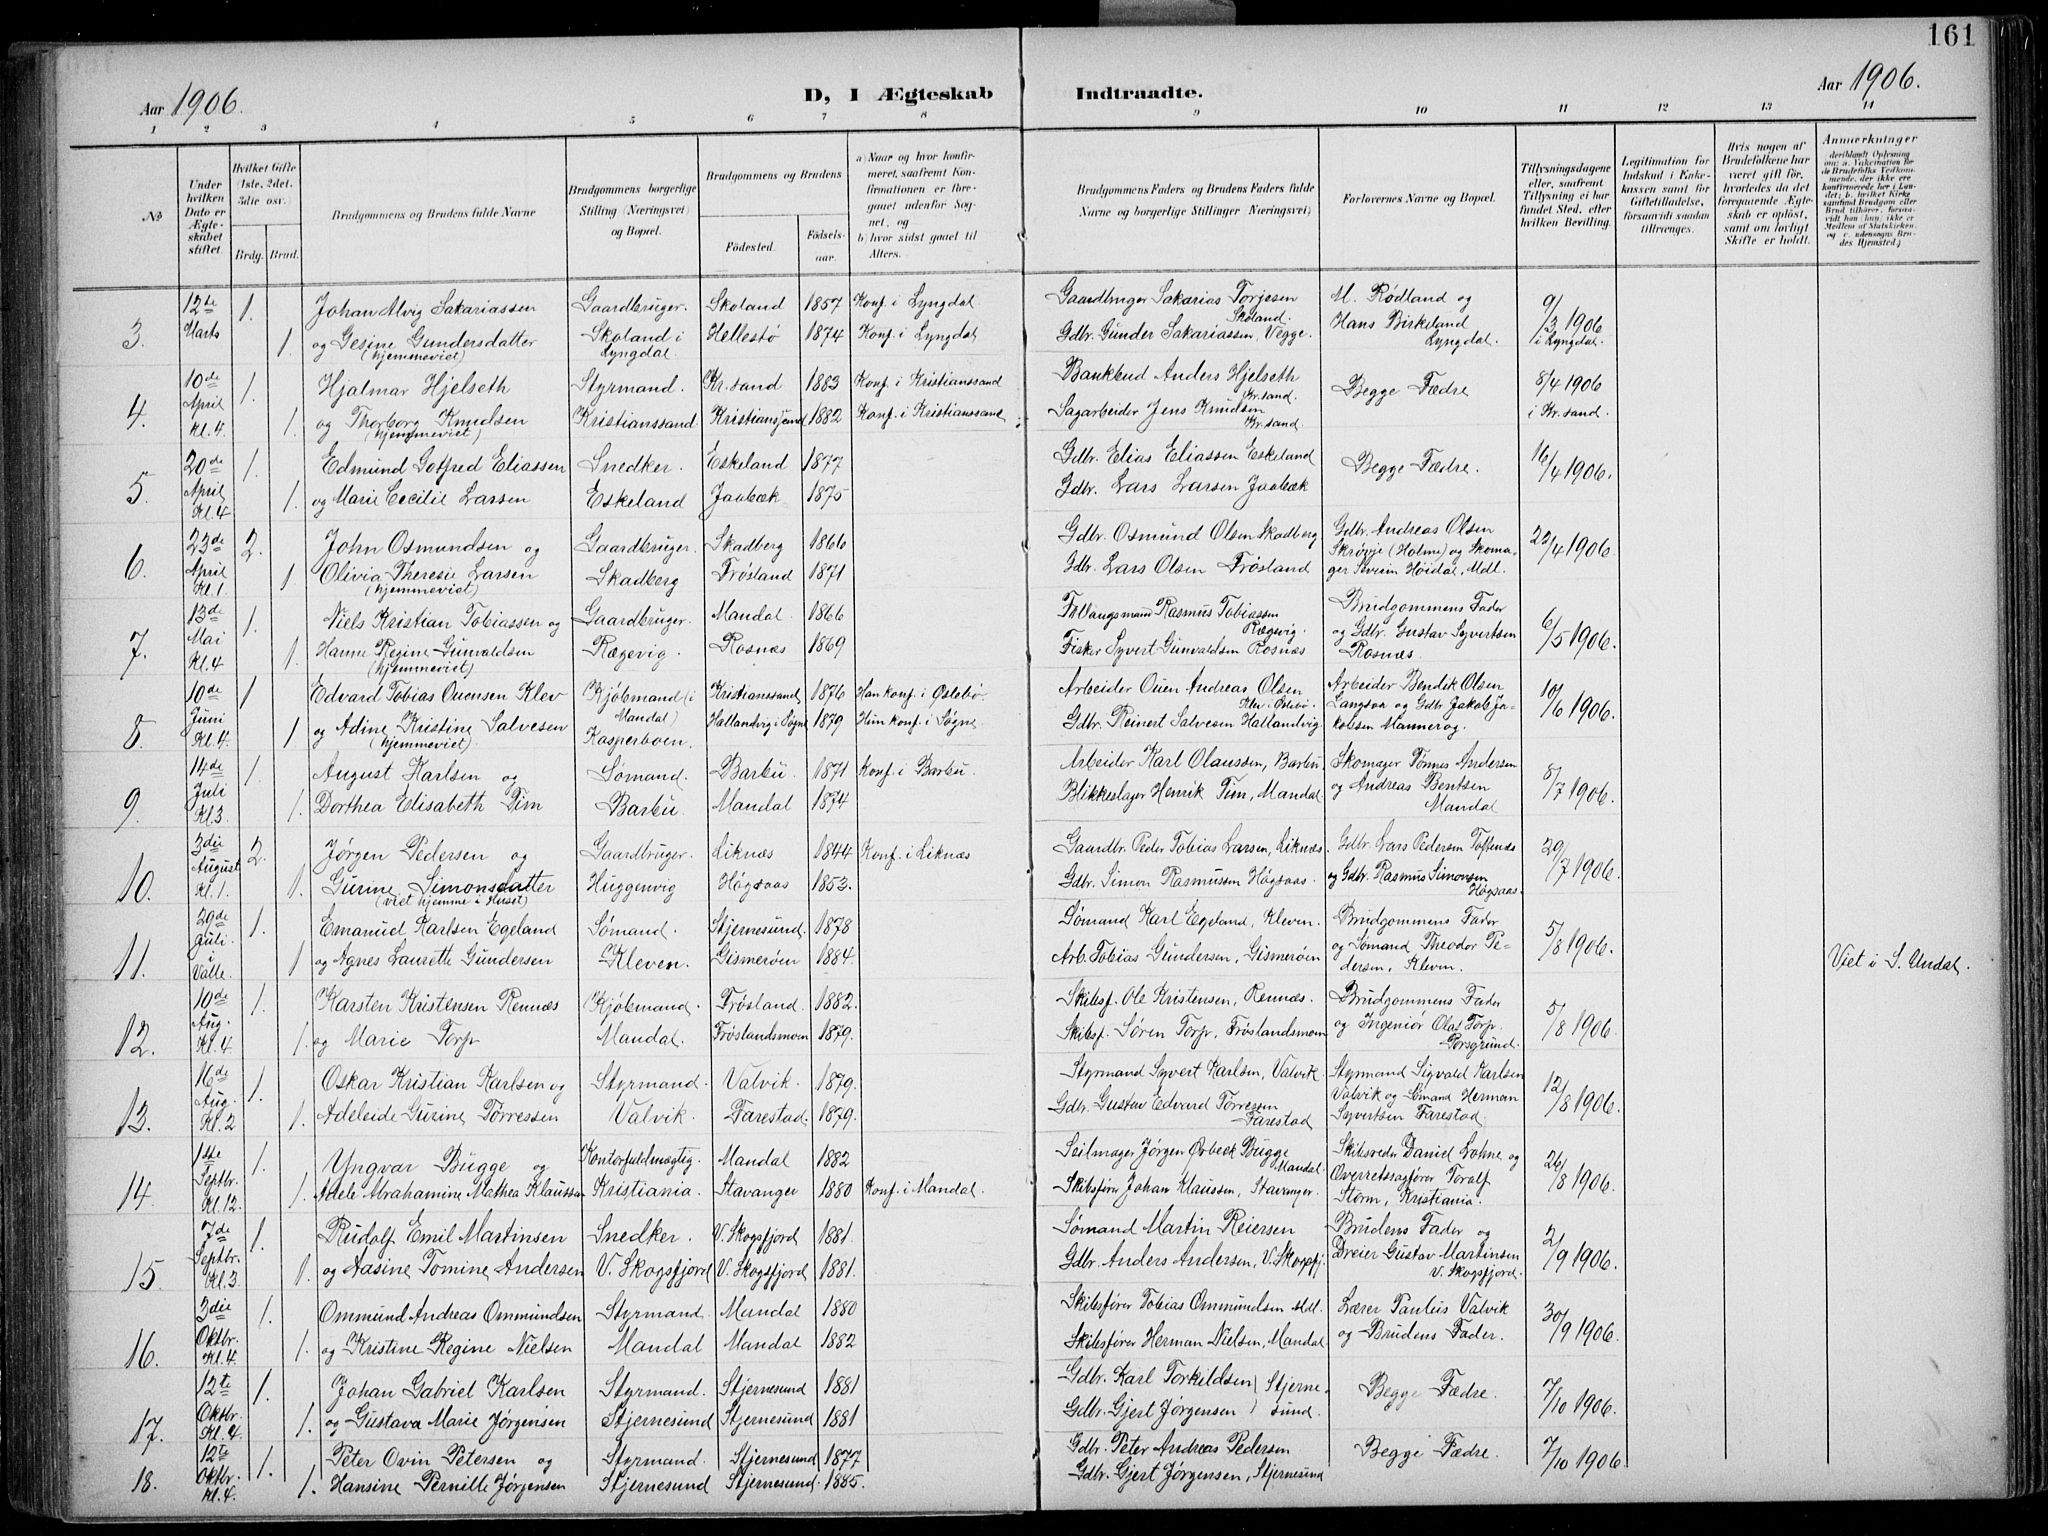 161
Aar 1906.
D, I Ægteskab Indtraadte.
Aar 1906.
1 2 3 4 5 6 7 8 9 10 11 12 13 14
No
Under hvilken Dato er Ægteskabet stiftet.
Hvilket Gifte (1ste, 2det, 3die osv.)
Brdg. Brud.
Brudgommens og Brudens fulde Navne
Brudgommens borgerlige Stilling (Næringsvei) og Bopæl.
Brudgommens og Brudens
Födested.
Födsels-aar.
a) Naar og hvor konfirmeret, saafremt Konfirmationen er foregaaet udenfor Sognet, og
b) hvor sidst gaaet til Alters.
Brudgommens Faders og Brudens Faders fulde Navne og borgerlige Stillinger Næringsvei)
Forlovernes Navne og Bopæl.
Tillysningsdagene eller, saafremt Tillysning ei har fundet Sted, efter hvilken Bevilling.
Legitimation for Indskud i Enkekassen samt for Giftetilladelse, forsaavidt saadan tiltrænges.
Hvis nogen af Brudefolkene har været gift før, hvorledes da det foregaaende Ægteskab er opløst, samt om lovligt Skifte er holdt.
Anmerkninger
deriblandt Oplysning om: a. Vakcination for de Brudefolks Vedkommende, der ikke ere konfirmerede her i Landet; b. hvilket Kirkesamfund Brudgom eller Brud tilhører, forsaavidt han/hun ikke er Medlem af Statskirken, og c. udensogns Brudes Hjemsted.)
3. 12te Marts 1. Johan Alvig Sakariassen Gaardbruger. Skoland 1857 Konf. i Lyngdal Gaardbruger Sakarias Torjesen Skoland. M. Rödland og 9/3 1906
1. og Gesine Gundersdatter (hjemmeviet) Skoland i Lyngdal. Hellestø 1874 Konf. i Lyngdal Gdbr. Gunder Sakariassen, Vegge. Hans Birkeland Lyngdal. i Lyngdal.
4. 10de April Kl. 4. 1. Hjalmar Hjelseth Styrmand. Kr.sand 1883 Konf. i Kristianssand Bankbud Anders Hjelseth Kr.sand. Begge Fædre 8/4 1906
1. og Thorborg Knudsen (hjemmeviet) Kristianssand. Kristianssand 1882 Konf. i Kristianssand Sagarbeider Jens Knudsen Kr.sand. i Kr.sand.
5. 20de April Kl. 4 1. Edmund Gotfred Eliassen Snedker. Eskeland 1877 Gdbr. Elias Eliassen Eskeland Begge Fædre. 16/4 1906.
1. og Marie Cecilie Larsen Eskeland Jaabæk 1875 Gdbr. Lars Larsen Jaabæk
6. 23de April Kl. 1. 2. John Osmundsen og Gaardbruger. Skadberg 1866 Gdbr. Osmund Olsen Skadberg Gdbr. Andreas Olsen 22/4 1906.
1 Olivia Theresie Larsen (hjemmeviet) Skadberg Frøsland 1871 Gdbr. Lars Olsen Frøsland Skrøvje (Holme) og Skomager Severin Höidal, Mdl.
7. 13de Mai Kl. 4 1. Niels Kristian Tobiassen og Gaardbruger. Mandal 1866 Rasmus Tobiassen Rægevig. Brudgommens Fader 6/5 1906.
1. Hanne Regine Gunvaldsen (hjemmeviet) Rægevig. Rosnæs 1869 Fisker Syvert Gunvaldsen Rosnæs og Gdbr. Gustav Syvertsen Rosnæs.
8. 10de Juni Kl. 4. 1 Edvard Tobias Ouensen Klev Kjøbmand (i Mandal) Kristianssand 1876 Han konf. i Øslebø. Arbeider Ouen Andreas Olsen Klev i Øslebø. Arbeider Bendik Olsen 10/6 1906.
1 og Adine Kristine Salvesen (hjemmeviet). Kasperboen. Hallandvig i Søgne 1879 Hun konf. i Søgne. Gdbr. Reinert Salvesen Hallandvig. Langaa og Gdbr Jakob Jakobsen Mannerog.
9. 14de Juli Kl. 3. 1. August Karlsen og Sømand. Barbu. 1871 Konf. i Barbu. Arbeider Karl Olaussen, Barbu Skomager Tønnes Andersen 8/7 1906.
1. Dorthea Elisabeth Tim Barbu Mandal 1874 Blikkeslager Henrik Tim, Mandal og Andreas Bentsen Mandal
10. 3die August Kl. 1. 2. Jørgen Pedersen og Gaardbruger. Liknæs 1844 Konf. i Liknæs Gaardbr. Peder Tobias Larsen, Liknæs. Gdbr. Lars Pedersen Toftenæs 29/7 1906.
1. Gurine Simonsdatter (viet hjemme i Huset) Huggenvig Høgsaas 1853. Gdbr. Simon Rasmussen Høgsaas. og Gdbr. Rasmus Simonsen Høgsaas.
11. 29de Juli i Valle. 1. Emanuel Karlsen Egeland Sømand. Stjernesund. 1878 Sømand Karl Egeland, Kleven. Brudgommens Fader 5/8 1906.
1 og Agnes Laurette Gundersen Kleven. Gismerøen 1884. Arb. Tobias Gundersen, Gismerøen og Sømand Theodor Pedersen, Kleven. Viet i S. Undal.
12. 10de Aug. Kl. 4. 1. Karsten Kristensen Rennæs Kjøbmand. Frøsland. 1882. Skibsf. Ole Kristensen, Rennæs. Brudgommens Fader 5/8 1906.
1. og Marie Torp Mandal. Frøslandsmoen 1879. Skibsf. Søren Torp, Frøslandsmoen og Ingeniør Olaf Torp, Porsgrund.
13. 16de Aug. Kl. 2 1. Oskar Kristian Karlsen og Styrmand. Valvik. 1879. Styrmand Syvert Karlsen, Valvik. Styrmand Sigvald Karlsen 12/8 1906.
1. Adeleide Gurine Tørressen Valvik. Farestad. 1879. Gdbr. Gustav Edvard Tørressen Farestad Valvik og Sømand Herman Syvertsen Farestad.
14. 1ste Septbr. Kl. 12. 1. Yngvar Bugge og Kontorfuldmægtig. Mandal 1882 Seilmager Jørgen Ørbeck Bugge Mandal. Skibsreder Daniel Lohne og 26/8 1906.
1. Adele Abrahamine Mathea Klaussen Kristiania. Stavanger 1880 Konf. i Mandal. Skibsfører Johan Klaussen, Stavanger. Overretssagfører Toralf Storm, Kristiania.
15. 7de Septbr. Kl. 3. 1. Rudolf Emil Martinsen Snedker. V. Skogsfjord 1881. Sømand Martin Reiersen Brudens Fader og 2/9 1906.
1. og Aasine Tomine Andersen V. Skogsfjord V. Skogsfjord 1881. Gdbr. Anders Andersen, V. Skogsfj. Dreier Gustav Martinsen V. Skogsfjord.
16. 3die Oktbr. Kl. 4. 1. Ommund Andreas Ommundsen Styrmand. Mandal 1880 Skibsfører Tobias Ommundsen Mdl. Lærer Paulus Valvik 30/9 1906.
1. og Kristine Regine Nielsen Mandal Mandal 1882 Skibsfører Herman Nielsen, Mandal og Brudens Fader.
17. 12te Oktbr. Kl. 4 1. Johan Gabriel Karlsen Styrmand. Stjernesund 1881 Gdbr. Karl Torkildsen) Stjerne- Begge Fædre. 7/10 1906.
1. og Gustava Marie Jørgensen Stjernesund Stjernesund 1881 Gdbr. Gjert Jørgensen ) sund.
18. 12te Oktbr. Kl. 4. 1. Peter Ovin Petersen og Styrmand. Stjernesund 1877 Gdbr. Peter Andreas Pedersen Begge Fædre. 7/10 1906
1. Hansine Pernille Jørgensen Stjernesund Stjernesund. 1885. Gdbr. Gjert Jørgensen, Stjernesund